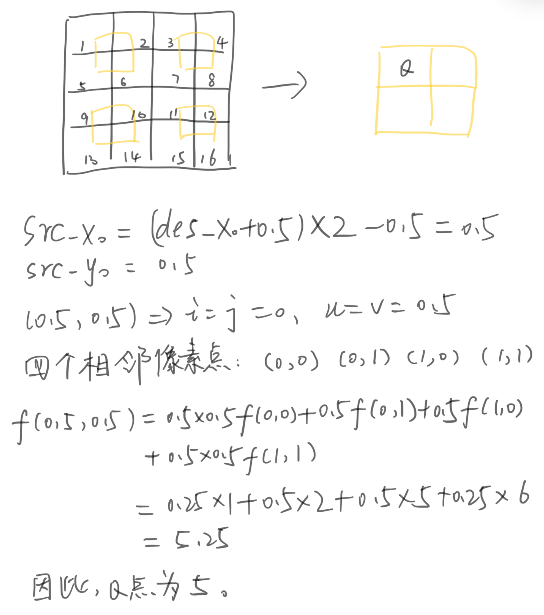 1 2 3 4
5 6 7 8
9 10 11 12
13 14 15 16
Q
Src-X₀ = (des-X₀+0.5)×2-0.5 = 0.5
src-y₀ = 0.5
(0.5, 0.5) ⇒ i=j=0, u=v=0.5
四个相邻像素点: (0,0) (0,1) (1,0) (1,1)
f(0.5,0.5) = 0.5×0.5f(0,0)+0.5f(0,1)+0.5f(1,0)
+0.5×0.5f(1,1)
= 0.25×1+0.5×2+0.5×5+0.25×6
= 5.25
因此, Q点为5。